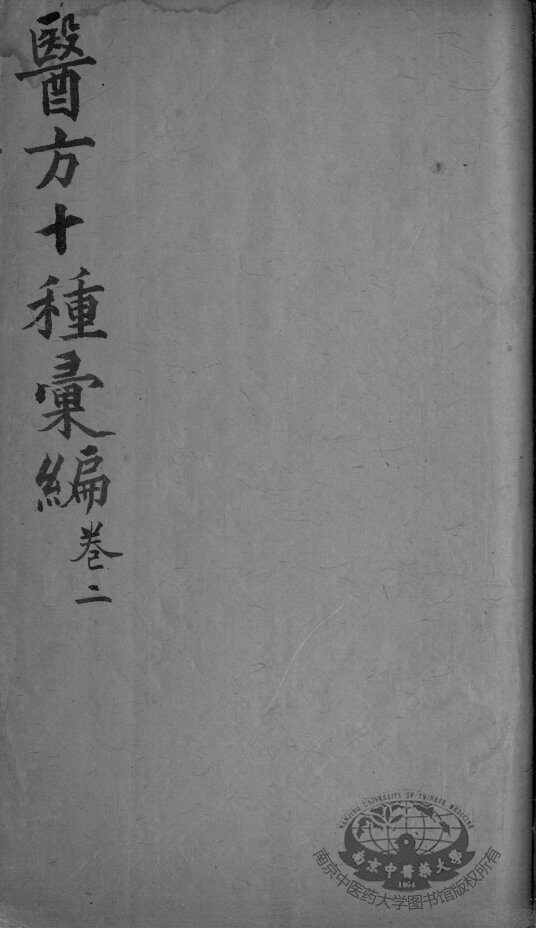 醫方十種彙編
卷二
NANJING UNIVERSITY OF CHINESE MEDICINE
南京中醫藥大學
1954
南京中医药大学图书馆版权所有